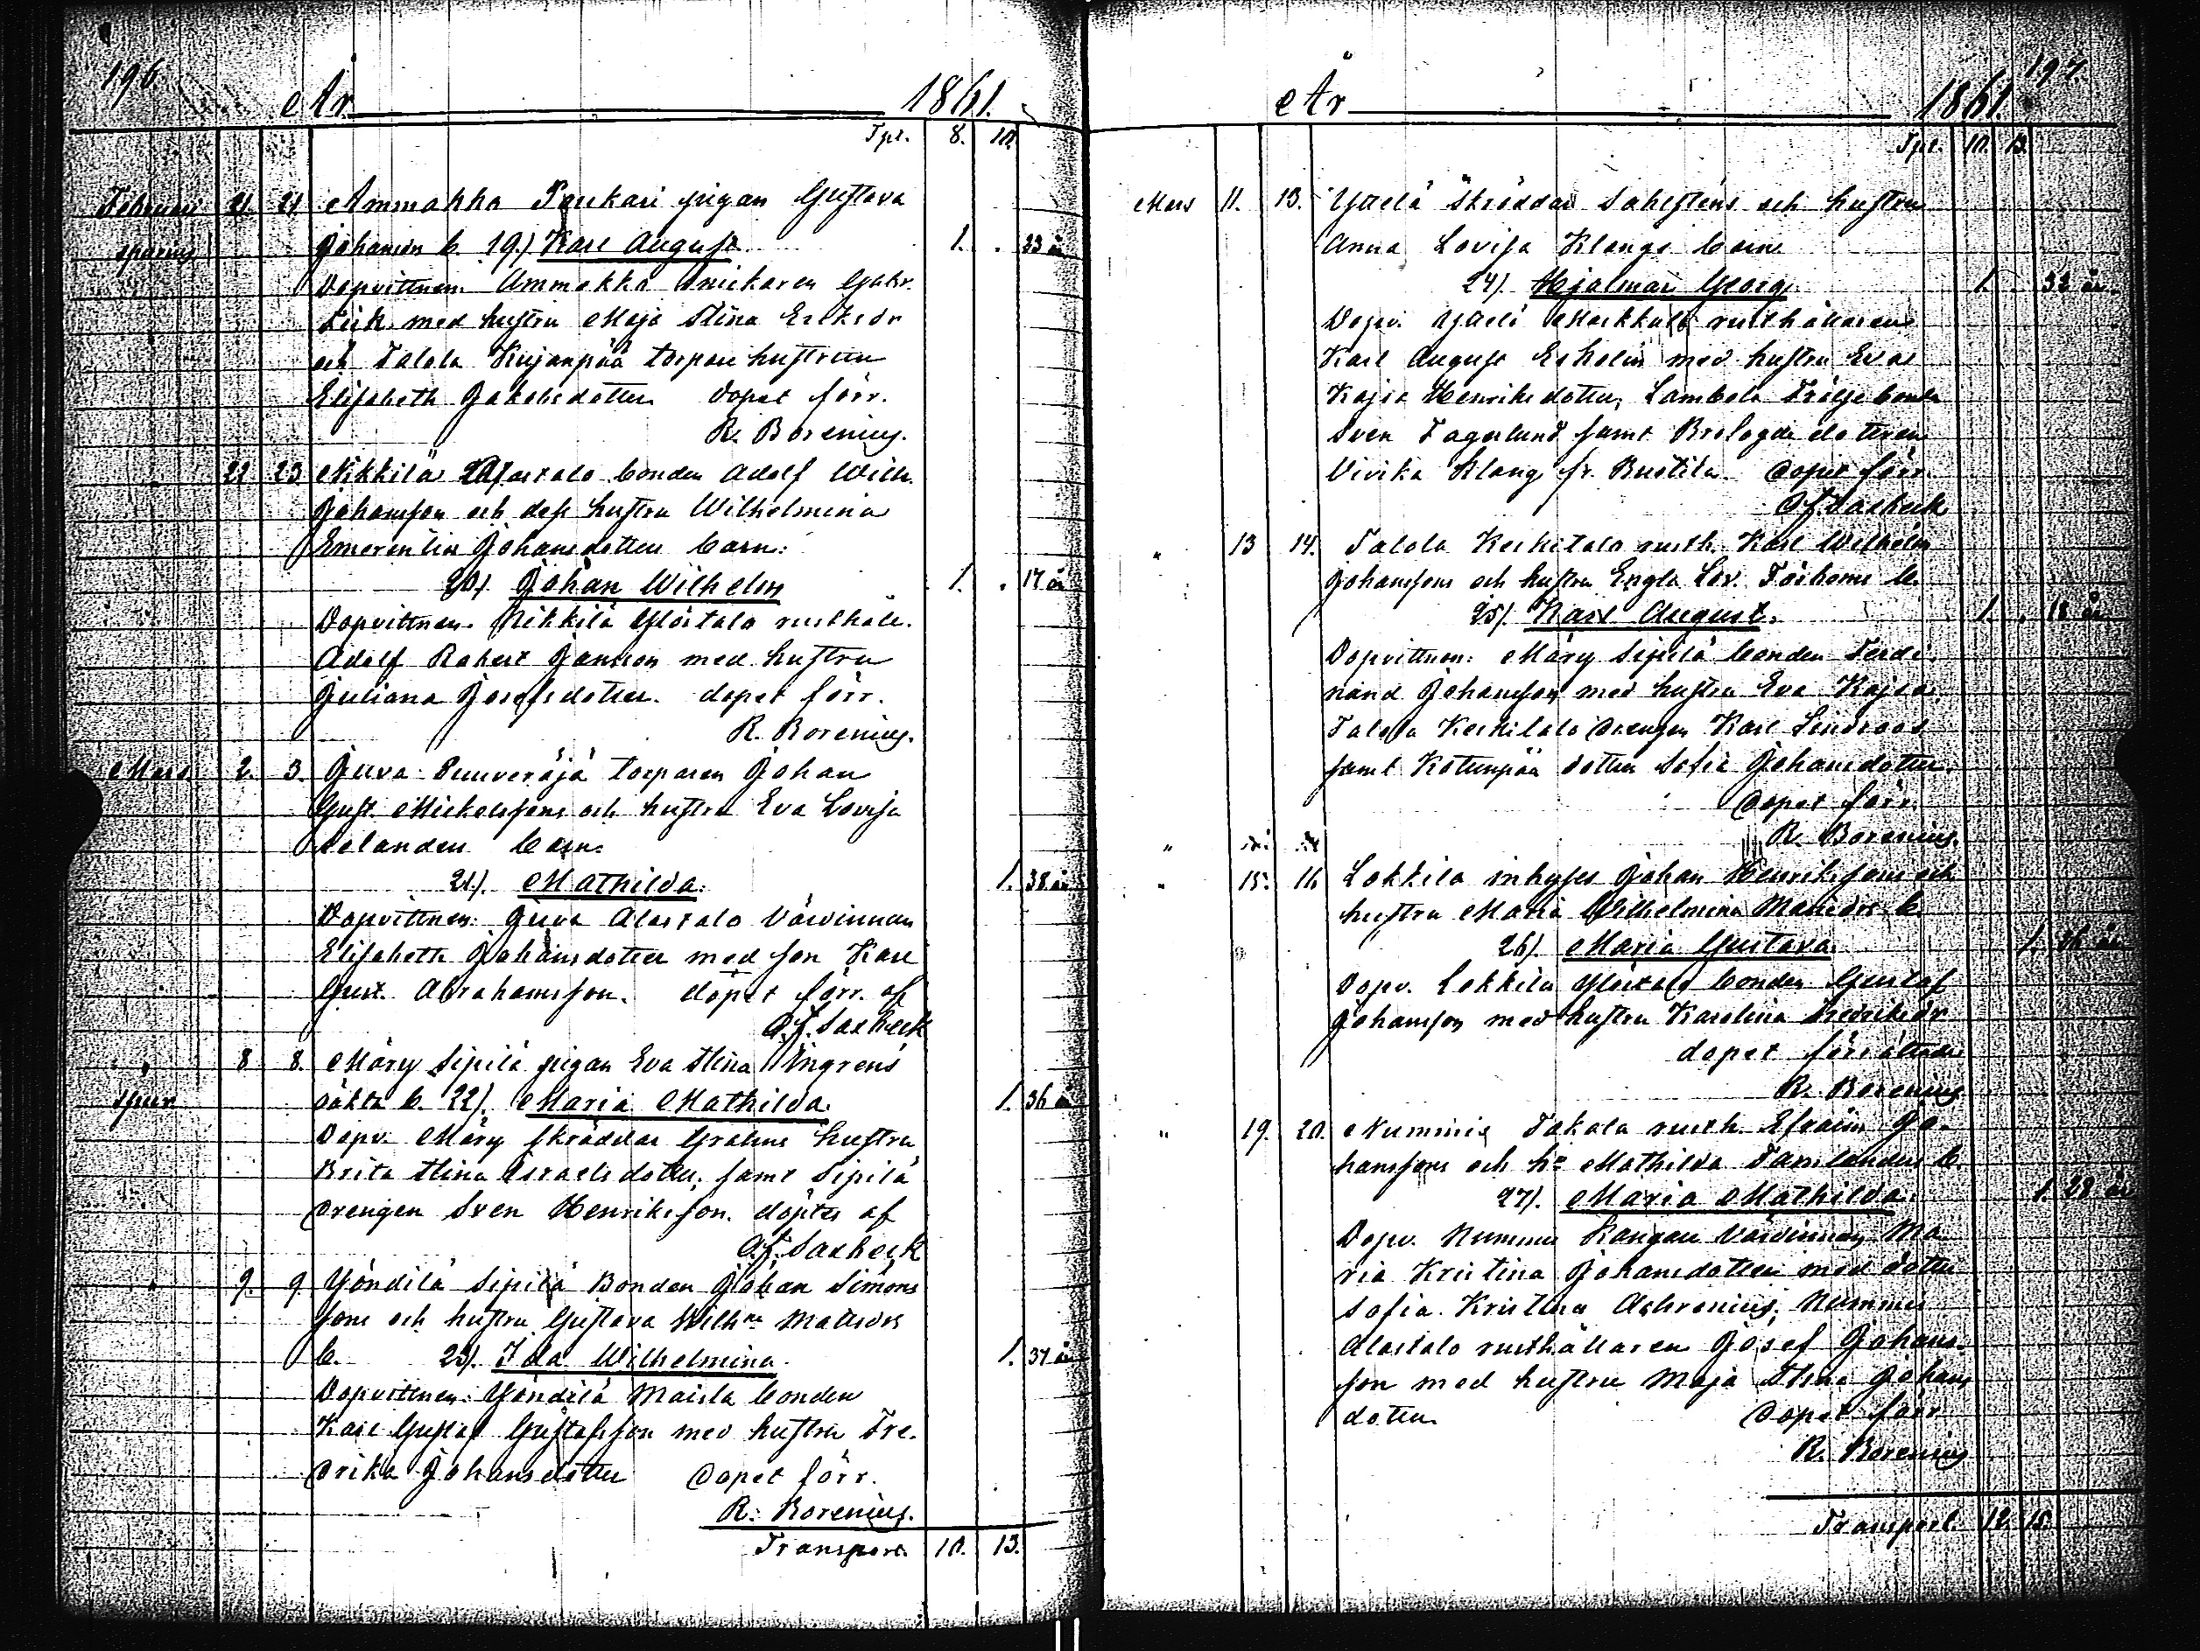 196.
År 1861.
Tpt. 8. 10.
Februari 21. 21. Ammakka Paukari pigan Gustava
spurius Johansdr b. 19.) Karl August 1. . 23 år
Dopvittnen: Ammakka snickaren Gabr.
med hustru Maja Stina Eriksdr
och Talola Kujanpää torpare hustrun
Elisabeth Jakobsdotter dopet förr.
R. Borenius.
" 22 23 Nikkilä Alastalo bonden Adolf Wilh.
Johansson och dess hustru Wilhelmina
Emerentia Johansdotter barn:
20). Johan Wilhelm 1. . 17 år
Dopvittnen. Nikkilä Ylöstalo rusthåll.
Adolf Robert Jansson med hustru
Juliana Josefsdotter. dopet förr.
R. Borenius.
Mars 2. 3. Juva Suuveräjä torparen Johan
Gust. Mickelssons och hustru Eva Lovisa
Salanders barn:
21). Mathilda. 1. 38 år
Dopvittnen: Juva Alastalo värdinnan
Elisabeth Johansdotter med son Karl
Gust. Abrahamsson. dopet förr. af
A.F. Saxbeck
" 8 8. Märy Sipilä pigan Eva Stina Ingrens
spur. oäkta b. 22). Maria Mathilda. 1. 36 år
Dopv. Märy skräddar Grahns hustru
Brita Stina Israelsdotter, samt Sipilä
drengen Sven Henriksson. döptes af
A.F. Saxbeck
" 9. 9. Yöndilä Sipilä Bonden Johan Simons
sons och hustru Gustava Wilhna Matsdrs
b. 23). Ida Wilhelmina. 1. 37 år
Dopvittnen: Yöndilä Maisla bonden
Karl Gustaf Gustafsson med hustru Fre-
drika Johansdotter dopet förr.
R. Borenius.
Transport. 10. 13.
197.
År 1861.
Tpt. 10. 13.
Mars 11. 13. skräddar Sahlsténs och hustru
Anna Lovisa Klangs barn.
24). Hjalmar Georg 1. 32 år
Dopv. rusthållaren
Karl August Ekholm med hustru Eva
Kajsa Henriksdotter, Lambola bonde
Sven Fagerlund samt dottren
Vivika Klang fr. Bustila. dopet förr.
A.F. Saxbeck
" 13 14. Talola Keskitalo rusth. Karl Wilhelm
Johanssons och hustru Engla Lov. b.
25). Karl August. 1. . 18 år
Dopvittnen: Märy Sipilä bonden Ferdi-
nand Johansson med hustru Eva Kajsa,
Talola Keskitalo drengen Karl Lindroos
samt Kotunpää dotter Sofia Johansdotter.
dopet förr.
R. Borenius.
" 15. 16 Lokkila inhyses Johan Henrikssons och
hustru Maria Wilhelmina Matsdrs b.
26). Maria Gustava 1. 26 år
Dopv. Lokkila Ylöstalo bonden Gustaf
Johansson med hustru Karolina Fredriksdr
dopet förrättades
R. Borenius
" 19. 20. Nummis Takala rusth. Efraim Jo-
hanssons och hu Mathilda b.
27). Maria Mathilda. 1. 28 år
Dopv. Nummis Kangare värdinnan Ma-
ria Kristina Johansdotter med dotter
Sofia Kristina Achrenius, Nummis
Alastalo rusthållaren Josef Johans-
son med hustru Maja Stina Johans
dotter. dopet förr
R. Borenius
Transport. 12. 15.